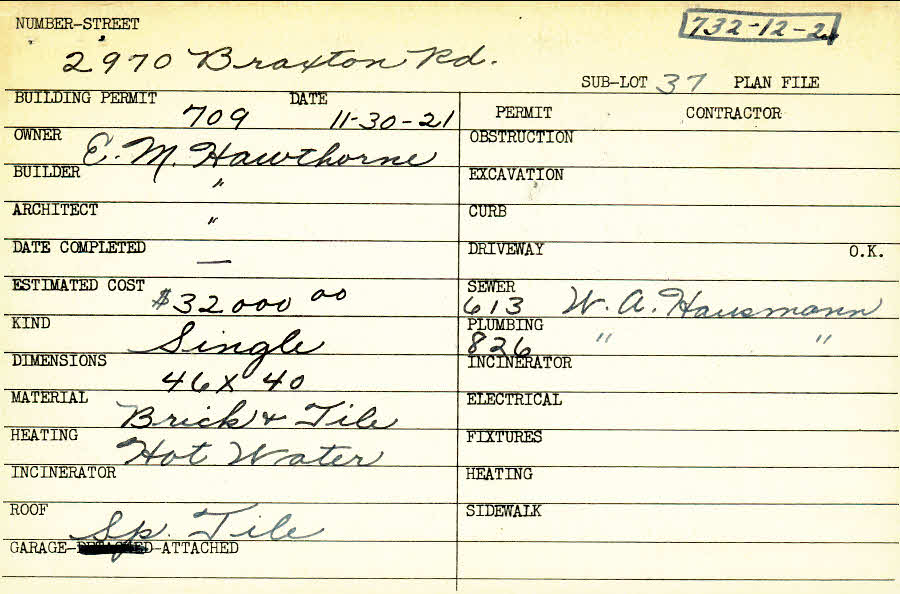 NUMBER-STREET
732-12-2
2970 Braxton Rd.
SUB-LOT 37 PLAN FILE
BUILDING PERMIT 709 DATE 11-30-21
OWNER E. M. Hawthorne
BUILDER "
ARCHITECT "
DATE COMPLETED —
ESTIMATED COST $32000 00
KIND Single
DIMENSIONS 46 x 40
MATERIAL Brick & Tile
HEATING Hot Water
INCINERATOR
ROOF Sp. Tile
GARAGE- -ATTACHED
PERMIT CONTRACTOR
OBSTRUCTION
EXCAVATION
CURB
DRIVEWAY O.K.
SEWER 613 W. A. Hausmann
PLUMBING 826 " "
INCINERATOR
ELECTRICAL
FIXTURES
HEATING
SIDEWALK